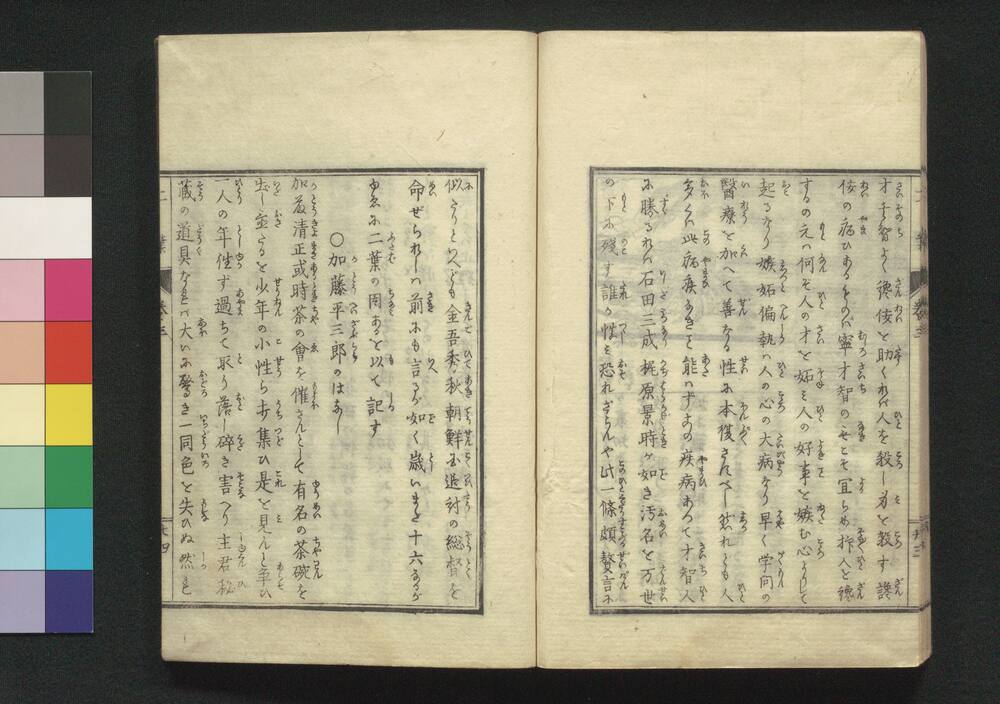 才子智よく讒佞を助くれバ人を殺し身を殺す讒
佞の病ひあるものハ寧才智のなきこそ宜らめ抑人を讒
するの元ハ何ぞ人の才を妬ミ人の好事を嫉む心よりして
起るなり嫉妬偏執ハ人の心の大病なり早く学問の
醫療を加へて善なる性に本復さすべし然れども人
多くハ此病療しがたきを能ハずまの疾病あつて才智人
に勝るれバ石田三成梶原景時が如き汚名を万世
の下に残す誰か性を恐れざらんや此一條頗贅言に
似たりといへども金吾秀秋朝鮮国追討の総督を
命ぜられしハ前にも言るが如く歳いまだ十六なるが
ゆゑに二葉の間あるを以て記す
〇加藤平三郎のはなし
加藤清正或時茶の會を催さんとして有名の茶碗を
出し置たるを少年の小性ら打集ひ是を見んと争ひ
一人の年性ず過ちて取り落し碎き害へり主君秘
蔵の道具なれバ大いに驚き一同色を失ひぬ然るを